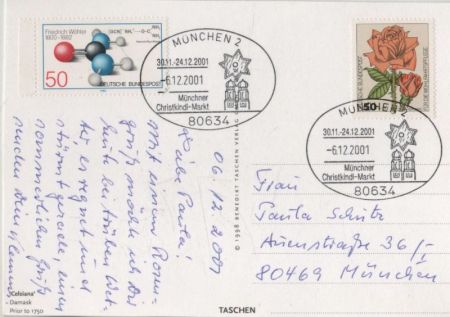 Friedrich Wöhler
1800-1882
50
DEUTSCHE BUNDESPOST
MÜNCHEN 2
30.11.-24.12.2001
-6.12.2001
Münchner
Christkindl-Markt
80634
50
MÜNCHEN 2
30.11.-24.12.2001
-6.12.2001
Münchner
Christkindl-Markt
80634
06.12.2001
Liebe Paula!
Mit einem Rosen-
gruß möchte ich Dir
heute bei trüben Wet-
ter, es regnet und
stürmt gerade, einen
sommerlichen Gruß
senden. Dein
© 1998 BENEDIKT TASCHEN VERLAG
Frau
Paula Schütz
Auenstraße 36/-
80469 München
'Celsiana'
— Damask
Prior to 1750
TASCHEN